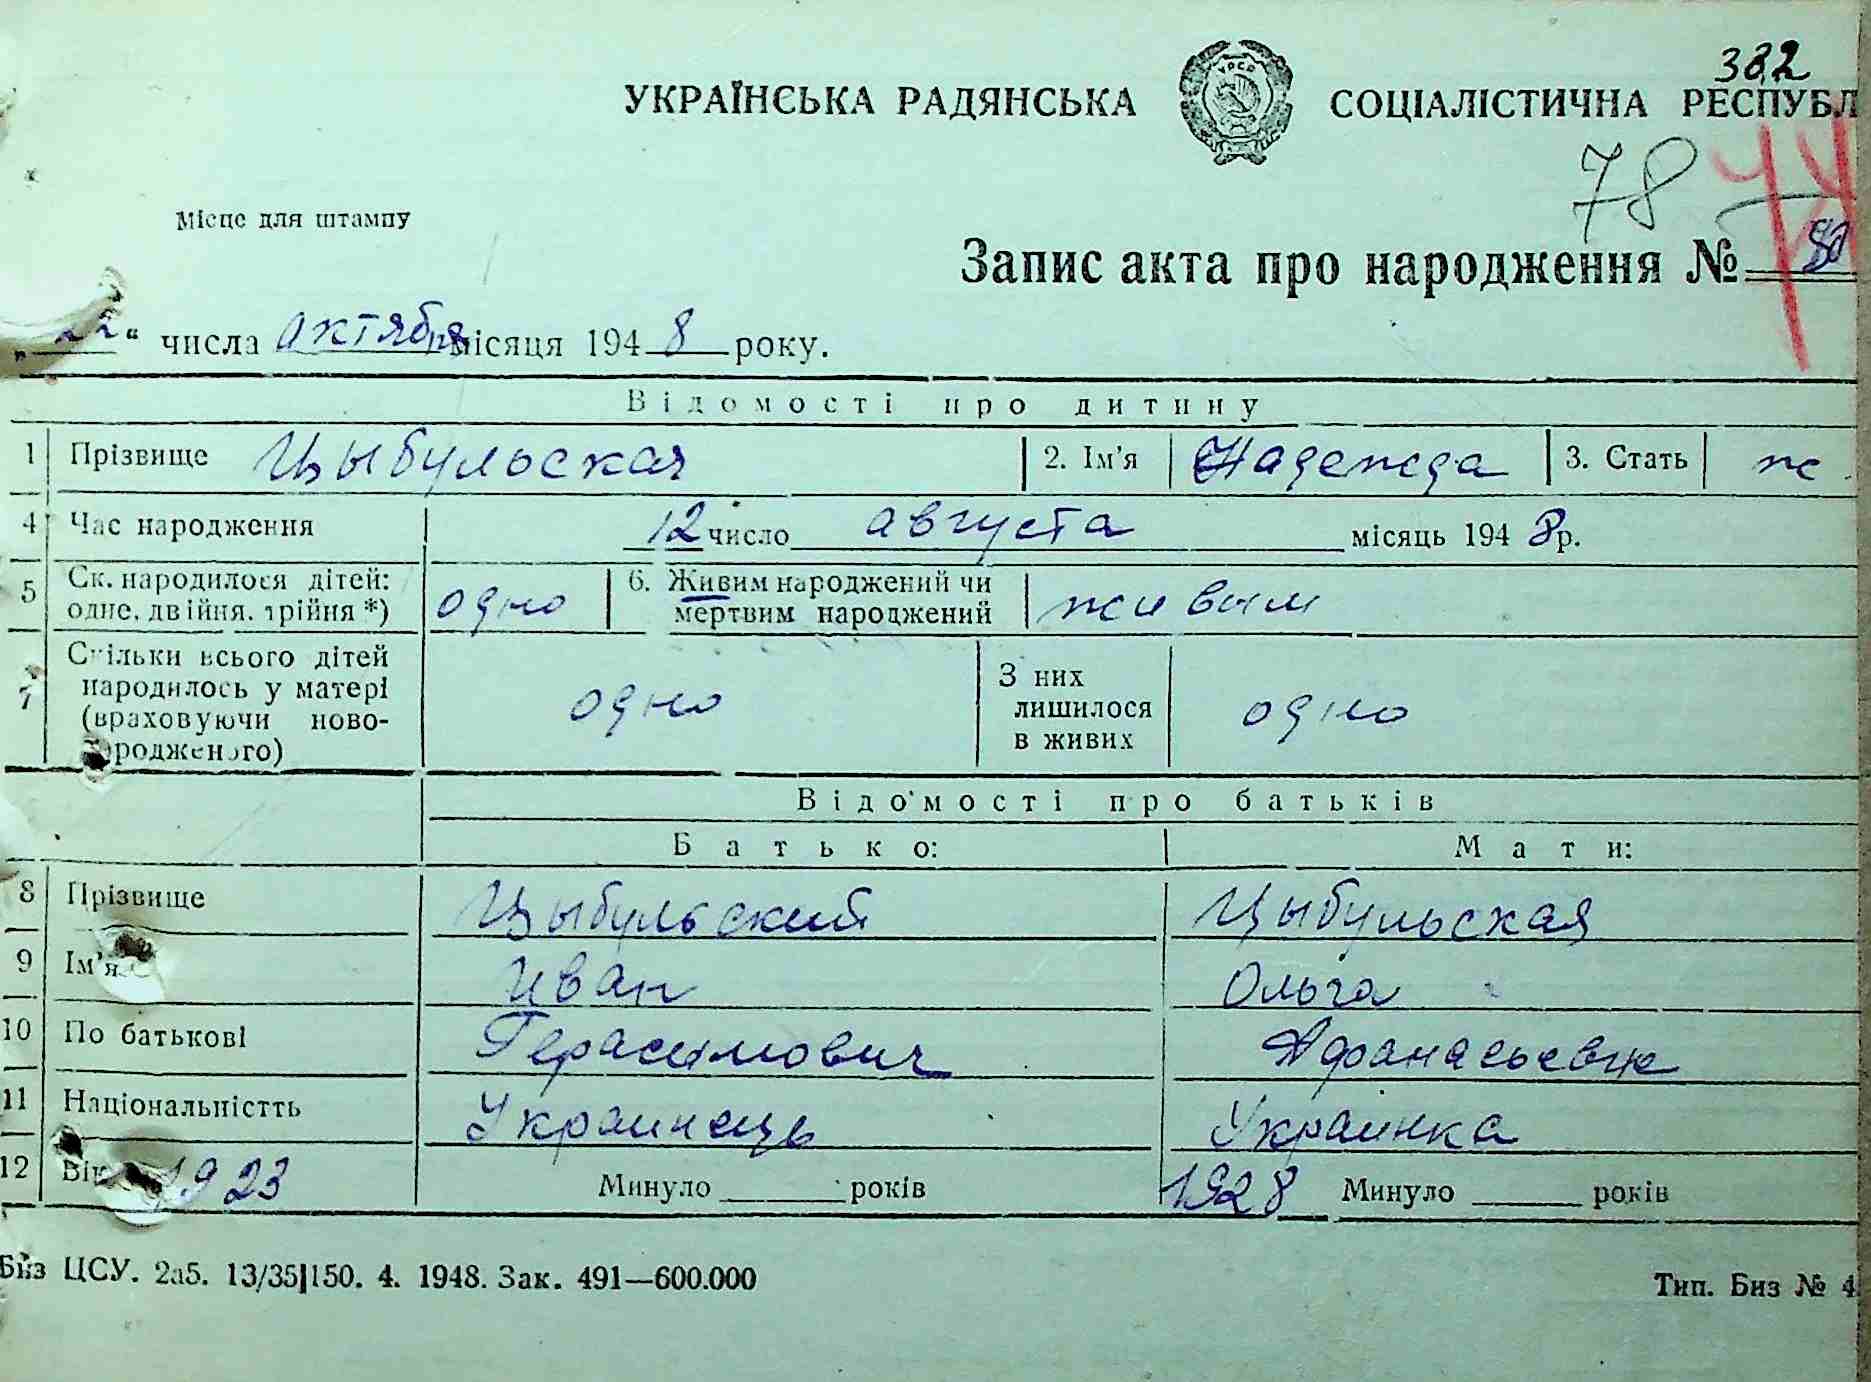 382
УКРАЇНСЬКА РАДЯНСЬКА СОЦІАЛІСТИЧНА РЕСПУБЛ
УРСР
78 44
Місце для штампу
Запис акта про народження № 50
„22“ числа октября місяця 1948 року.
Відомості про дитину
1 Прізвище Цыбульская 2. Ім’я Надежда 3. Стать ж
4 Час народження 12 число августа місяць 1948 р.
5 Ск. народилося дітей: одне, двійня, трійня *) одно 6. Живим народжений чи мертвим народжений живым
7 Скільки всього дітей народилось у матері (враховуючи ново-
родженого) одно З них лишилося в живих одно
Відомості про батьків
Батько: Мати:
8 Прізвище Цыбульский Цыбульская
9 Ім’я Иван Ольга
10 По батькові Герасимович Афанасьевна
11 Національністть Украинець Украинка
12 Вік 1923 Минуло ______ років 1928 Минуло ______ років
Биз ЦСУ. 2а5. 13/35|150. 4. 1948. Зак. 491—600.000
Тип. Биз № 4